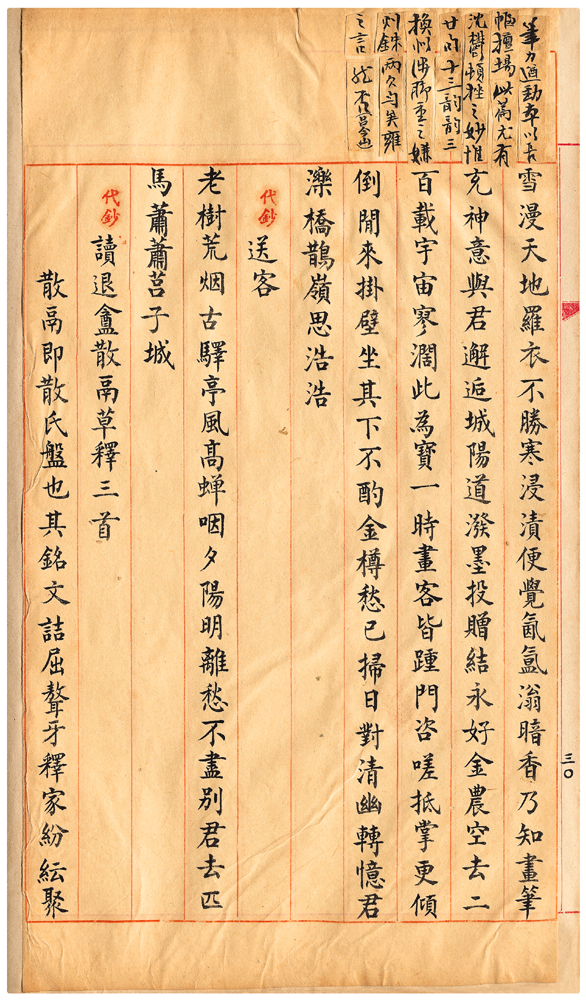 筆力遒勁本以長
幅擅場此篇尤有
沈鬱頓挫之妙惟
廿句十三韵韵三
換似涉腳重之嫌
刈銖兩
之言
雪漫天地羅衣不勝寒浸漬便覺氤氳滃暗香乃知畫筆
充神意與君邂逅城陽道潑墨投贈結永好金農空去二
百載宇宙寥濶此為寶一時畫客皆踵門咨嗟抵掌更傾
倒閒來掛壁坐其下不酌金樽愁已掃日對清幽轉憶君
濼橋鵲嶺思浩浩
代鈔
送客
老樹荒烟古驛亭風高蝉咽夕陽明離愁不盡別君去匹
馬蕭蕭莒子城
代鈔
讀退盦散鬲草釋三首
散鬲即散氏盤也其銘文詰屈聱牙釋家紛紜聚
三〇